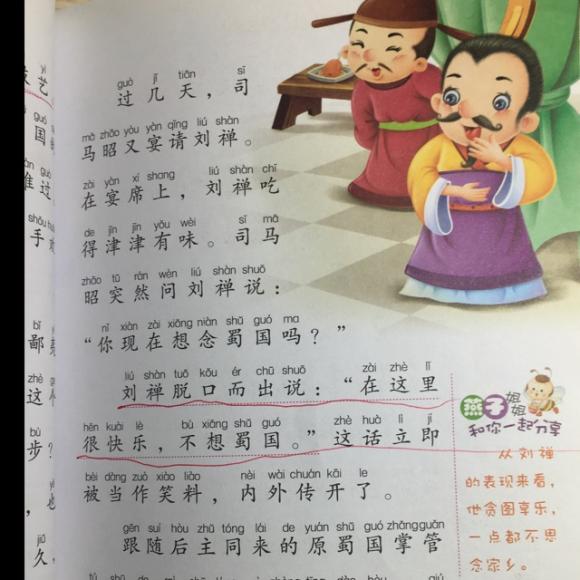 guò jǐ tiān sī
过几天，司
mǎ zhāo yòu yàn qǐng liú shàn
马昭又宴请刘禅。
zài yàn xí shang liú shàn chī
在宴席上，刘禅吃
de jīn jīn yǒu wèi sī mǎ
得津津有味。司马
zhāo tū rán wèn liú shàn shuō
昭突然问刘禅说：
nǐ xiàn zài xiǎng niàn shǔ guó ma
“你现在想念蜀国吗？”
liú shàn tuō kǒu ér chū shuō zài zhè lǐ
刘禅脱口而出说：“在这里
hěn kuài lè bù xiǎng shǔ guó zhè huà lì jí
很快乐，不想蜀国。”这话立即
bèi dàng zuò xiào liào nèi wài chuán kāi le
被当作笑料，内外传开了。
gēn suí hòu zhǔ tóng lái de yuán shǔ guó zhǎng guǎn
跟随后主同来的原蜀国掌管
燕子姐姐
和你一起分享
从刘禅
的表现来看，
他贪图享乐，
一点都不思
念家乡。
艺
guó
国
过
手
bǐ
鄙
zhè
这
bù
步？
jiǔ
久，